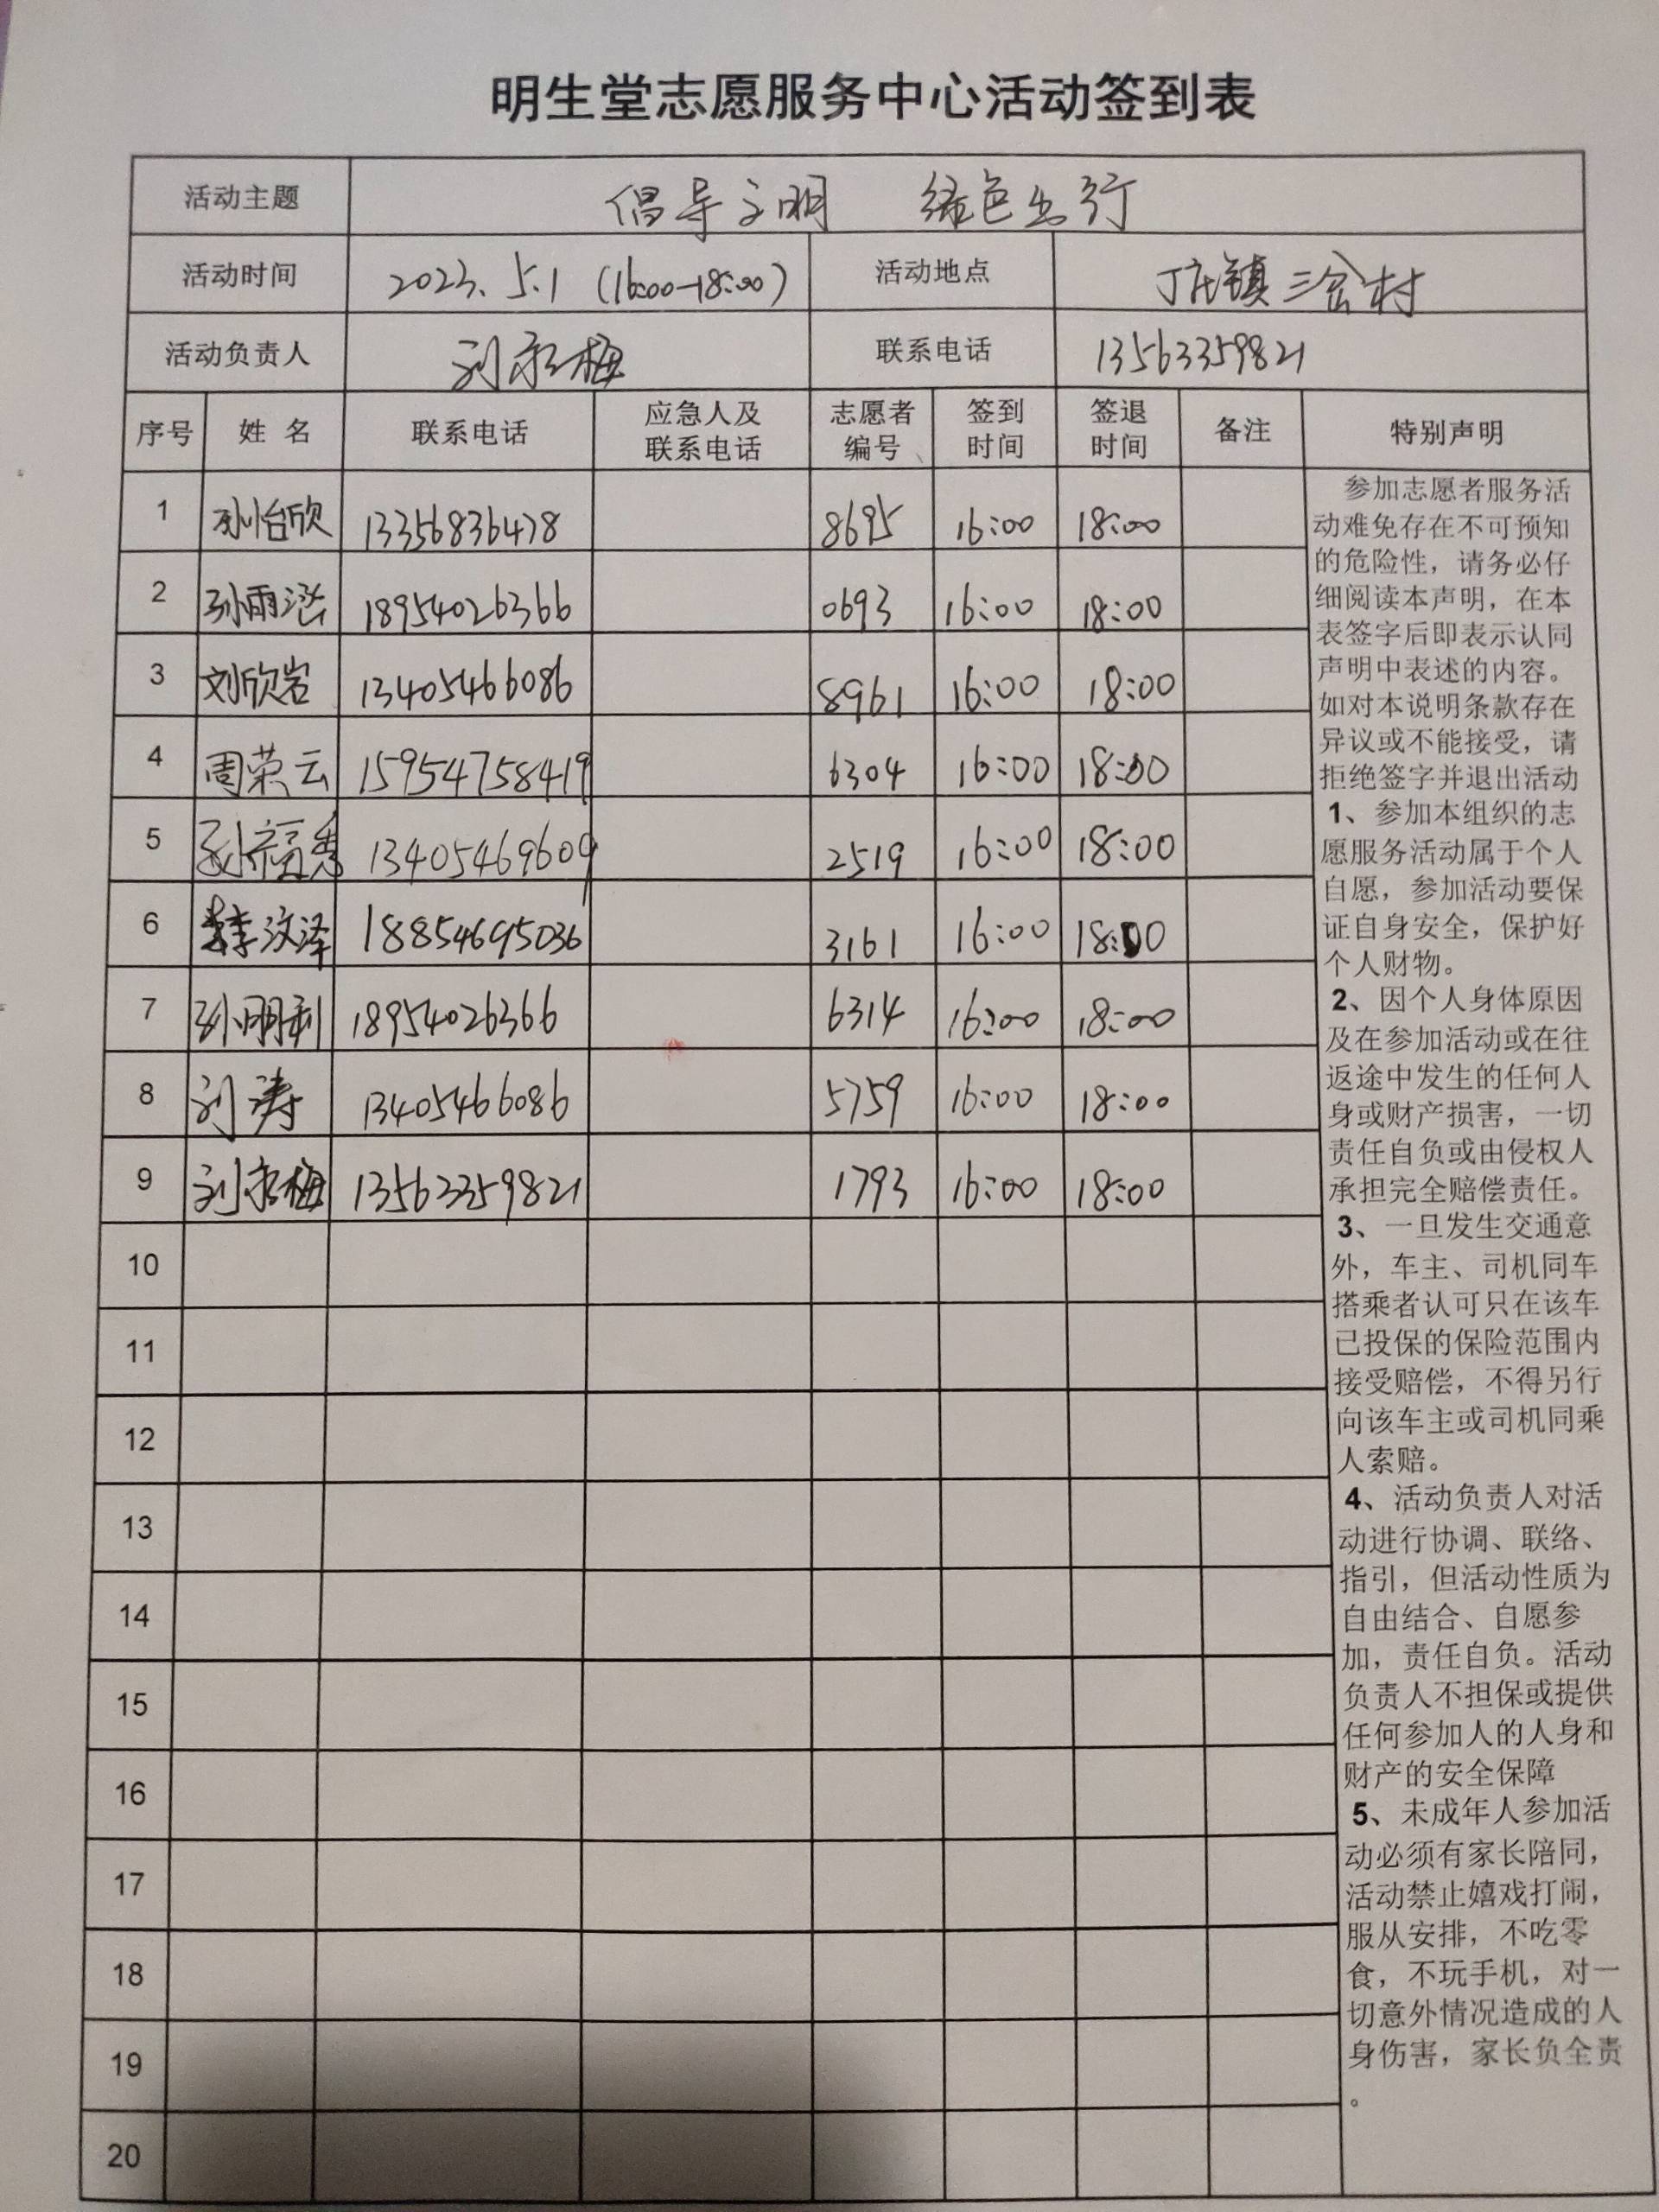 明生堂志愿服务中心活动签到表
活动主题 倡导文明 绿色出行
活动时间 2023.5.1 (16:00-18:00) 活动地点 丁庄镇三岔村
活动负责人 刘永梅 联系电话 13563359821
序号 姓名 联系电话 应急人及联系电话 志愿者编号 签到时间 签退时间 备注 特别声明
1 孙怡欣 13356836478 8695 16:00 18:00
2 孙雨泓 18954026366 0693 16:00 18:00
3 刘欣岩 13405466086 8961 16:00 18:00
4 周荣云 15954758419 6304 16:00 18:00
5 孙福秀 13405469609 2519 16:00 18:00
6 李汶泽 18854695036 3161 16:00 18:00
7 孙明利 18954026366 6314 16:00 18:00
8 刘涛 13405466086 5759 16:00 18:00
9 刘永梅 13563359821 1793 16:00 18:00
10
11
12
13
14
15
16
17
18
19
20
参加志愿者服务活
动难免存在不可预知
的危险性，请务必仔
细阅读本声明，在本
表签字后即表示认同
声明中表述的内容。
如对本说明条款存在
异议或不能接受，请
拒绝签字并退出活动
1、参加本组织的志
愿服务活动属于个人
自愿，参加活动要保
证自身安全，保护好
个人财物。
2、因个人身体原因
及在参加活动或在往
返途中发生的任何人
身或财产损害，一切
责任自负或由侵权人
承担完全赔偿责任。
3、一旦发生交通意
外，车主、司机同车
搭乘者认可只在该车
已投保的保险范围内
接受赔偿，不得另行
向该车主或司机同乘
人索赔。
4、活动负责人对活
动进行协调、联络、
指引，但活动性质为
自由结合、自愿参
加，责任自负。活动
负责人不担保或提供
任何参加人的人身和
财产的安全保障
5、未成年人参加活
动必须有家长陪同，
活动禁止嬉戏打闹，
服从安排，不吃零
食，不玩手机，对一
切意外情况造成的人
身伤害，家长负全责
。